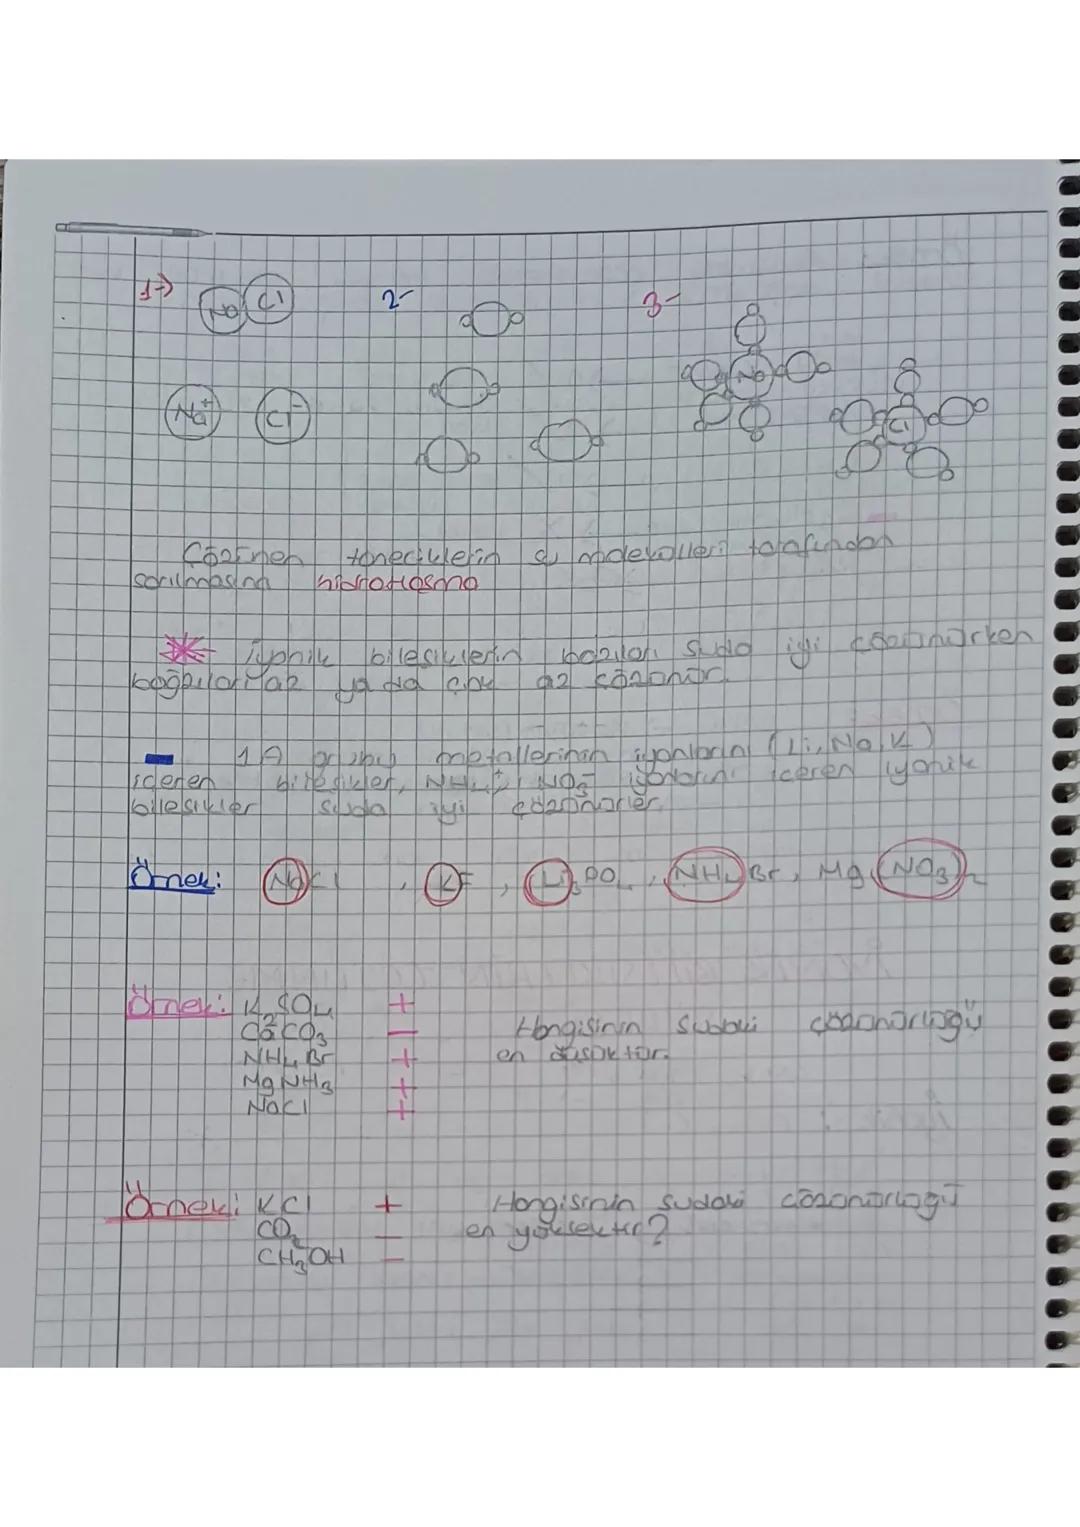 1-) Na Cl 2- 3-
Na Cl
Na+ Cl-
Çözünen taneciklerin su molekülleri tarafından
sarılmasına hidratlaşma
İyonik bileşiklerin bazıları suda iyi çözünürken
bazıları az ya da çok az çözünür.
1A grubu metallerinin iyonlarını (Li, Na, K)
içeren bileşikler, NH4+, NO3- iyonlarını içeren iyonik
bileşikler suda iyi çözünürler
Örnek: NaCl, KF, Li3PO4, NH4Br, Mg(NO3)2
Örnek: K2SO4 +
CaCO3 - Hangisinin sudaki çözünürlüğü
NH4Br + en düşüktür.
MgNH3 +
NaCl +
Örnek: KCl + Hangisinin sudaki çözünürlüğü
CO2 - en yüksektir?
CH3OH -